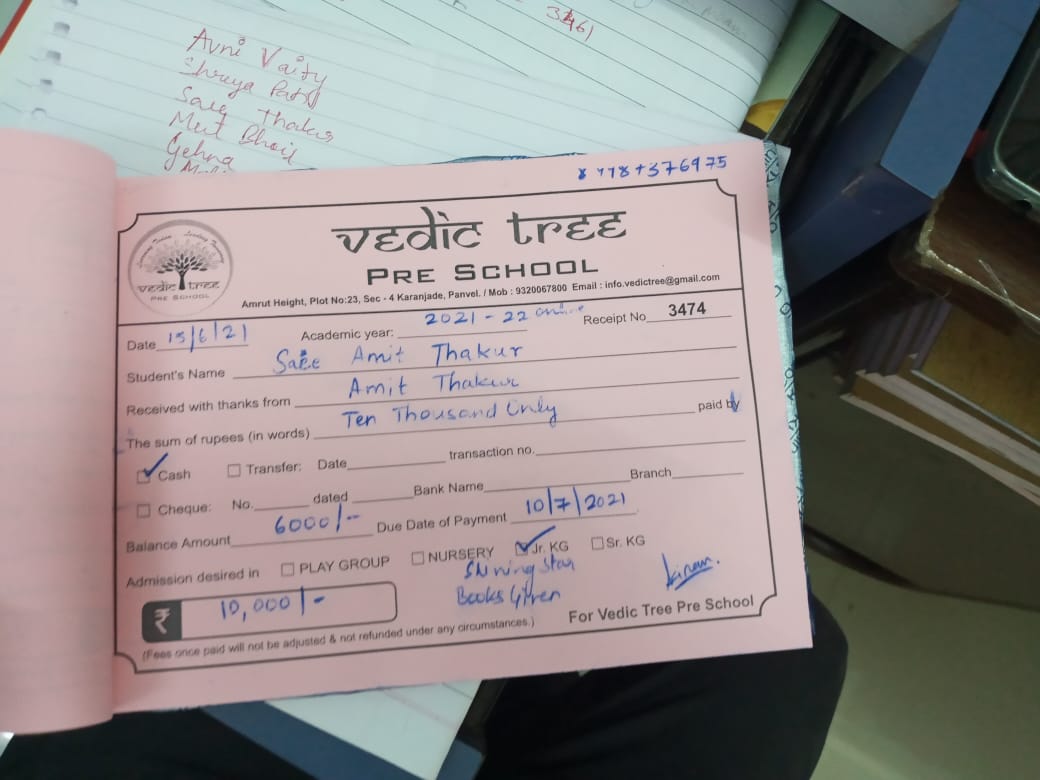 3461
Avni Vaity
Shreya Patil
Saee Thakur
Meet Bhoir
Gehna
vedic tree
PRE SCHOOL
vedic tree
PRE SCHOOL
Amrut Height, Plot No:23, Sec - 4 Karanjade, Panvel. / Mob : 9320067800 Email : info.vedictree@gmail.com
Date 15/6/21 Academic year: 2021-22 online Receipt No 3474
Student's Name Saee Amit Thakur
Received with thanks from Amit Thakur
The sum of rupees (in words) Ten Thousand Only paid by
Cash Transfer: Date transaction no.
Cheque: No. dated Bank Name Branch
Balance Amount 6000/- Due Date of Payment 10/7/2021
Admission desired in PLAY GROUP NURSERY Jr. KG Sr. KG
Shining Star
Books Given
₹ 10,000/-
For Vedic Tree Pre School
(Fees once paid will not be adjusted & not refunded under any circumstances.)